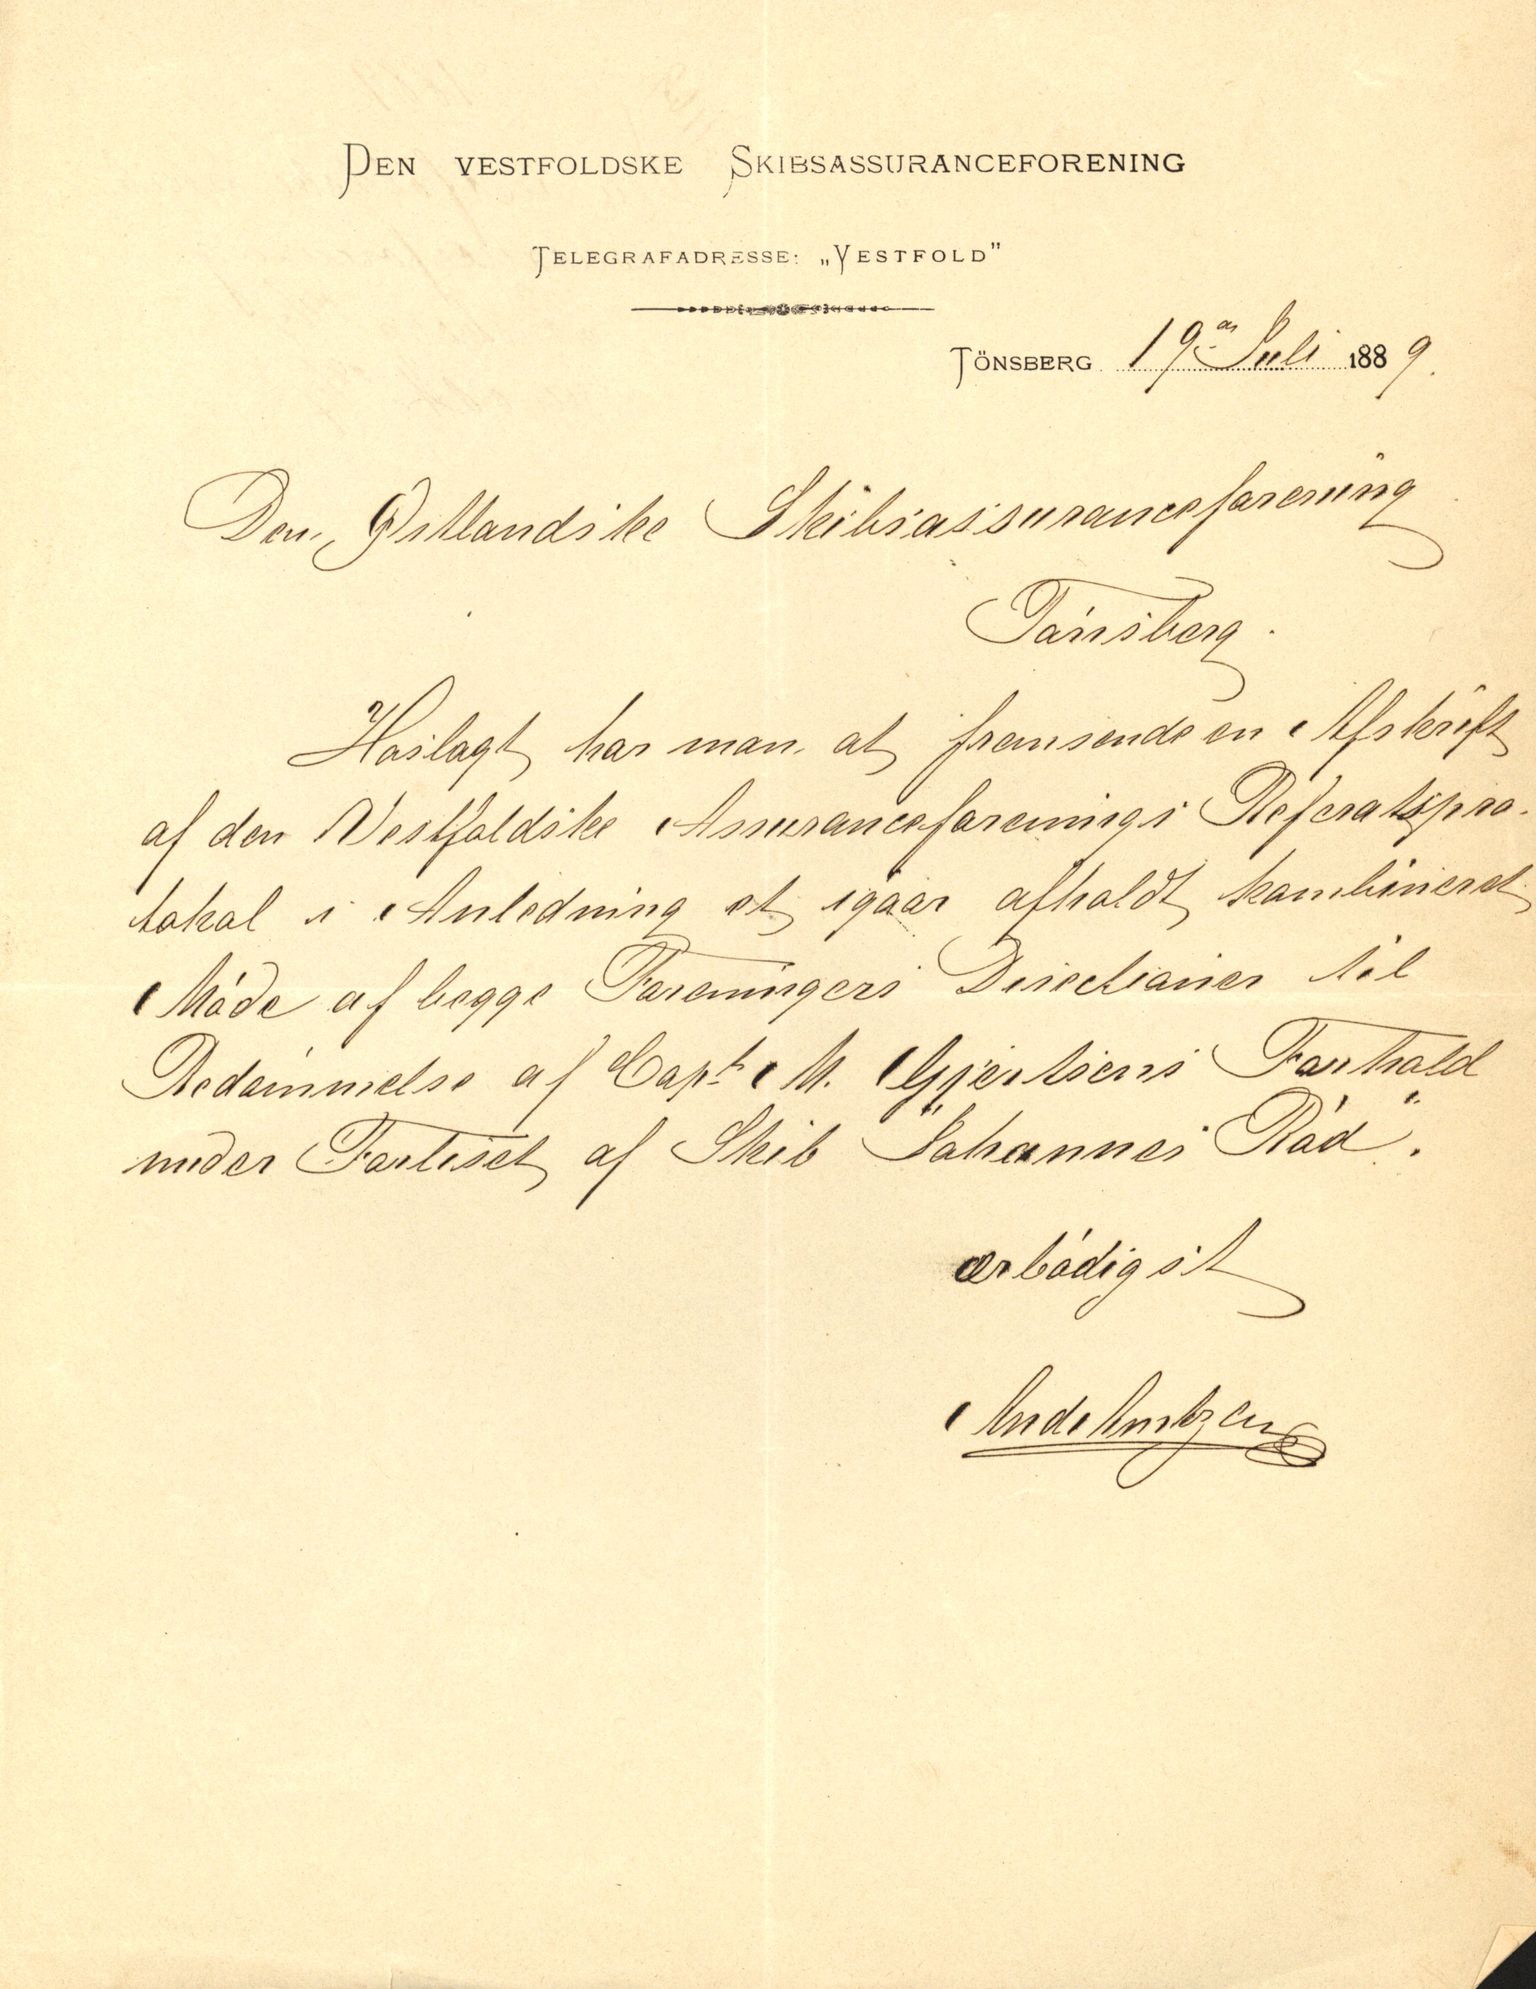 DEN VESTFOLDSKE SKIBSASSURANCEFORENING
TELEGRAFADRESSE: „VESTFOLD"
TÖNSBERG 19 Juli 1889.
Den Østlandske Skibsassuranceforening
Tönsberg.
Hoslagt har man at fremsende en Afskrift
af den Vestfoldske Assuranceforenings Referatspro-
tokol i Anledning et igaar afholdt kombineret
Möde af begge Foreningers Directioner til
Bedömmelse af Capt. M. Gjertsens Forhold
under Forliset af Skib "Johannes Röd".
ærbödigst